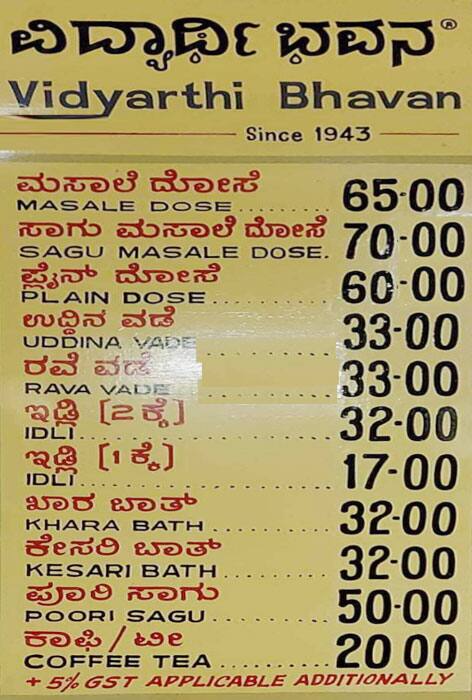 ವಿದ್ಯಾರ್ಥಿ ಭವನ®
Vidyarthi Bhavan
Since 1943
ಮಸಾಲೆ ದೋಸೆ
MASALE DOSE......... 65-00
ಸಾಗು ಮಸಾಲೆ ದೋಸೆ
SAGU MASALE DOSE. 70-00
ಪ್ಲೈನ್ ದೋಸೆ
PLAIN DOSE............ 60-00
ಉದ್ದಿನ ವಡೆ
UDDINA VADE 33-00
ರವೆ ವಡೆ
RAVA VADE 33-00
ಇಡ್ಲಿ (2 ಕ್ಕೆ)
IDLI......................... 32-00
ಇಡ್ಲಿ (1 ಕ್ಕೆ)
IDLI......................... 17-00
ಖಾರ ಬಾತ್
KHARA BATH............ 32-00
ಕೇಸರಿ ಬಾತ್
KESARI BATH........... 32-00
ಪೂರಿ ಸಾಗು
POORI SAGU............ 50-00
ಕಾಫಿ / ಟೀ
COFFEE TEA............ 20 00
+ 5% GST APPLICABLE ADDITIONALLY